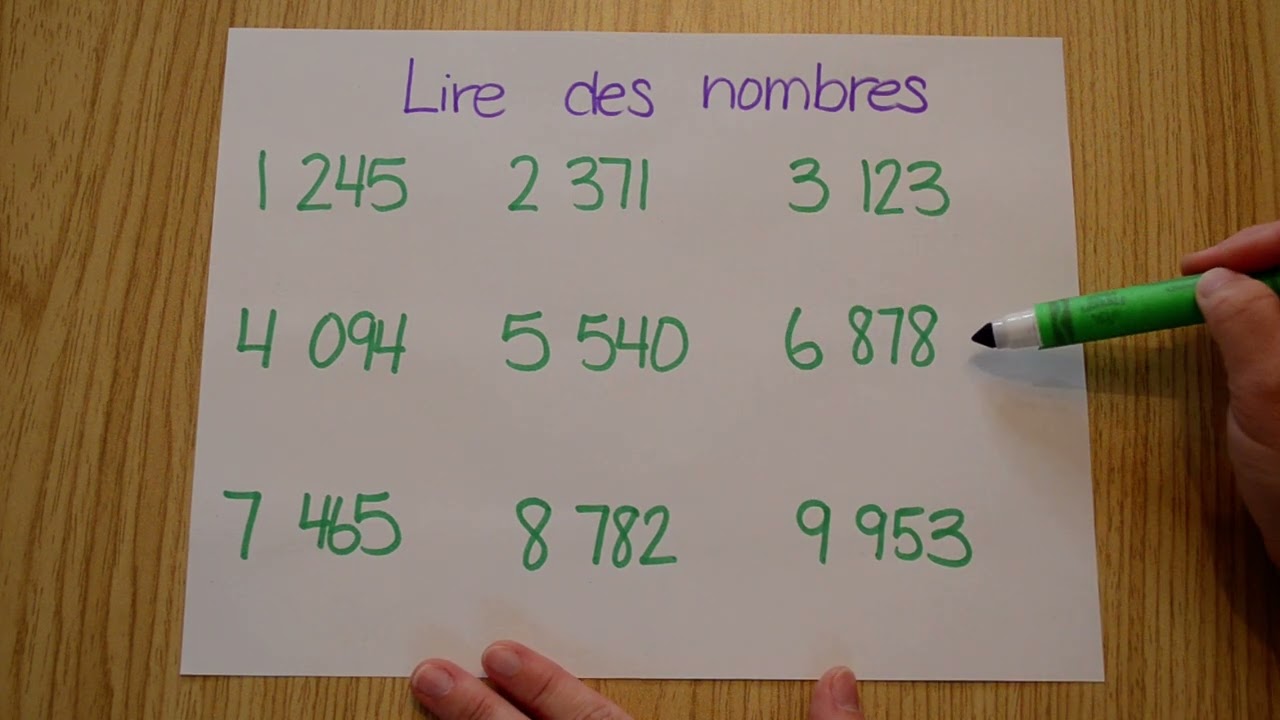 Lire des nombres
1 245 2 371 3 123
4 094 5 540 6 878
7 465 8 782 9 953